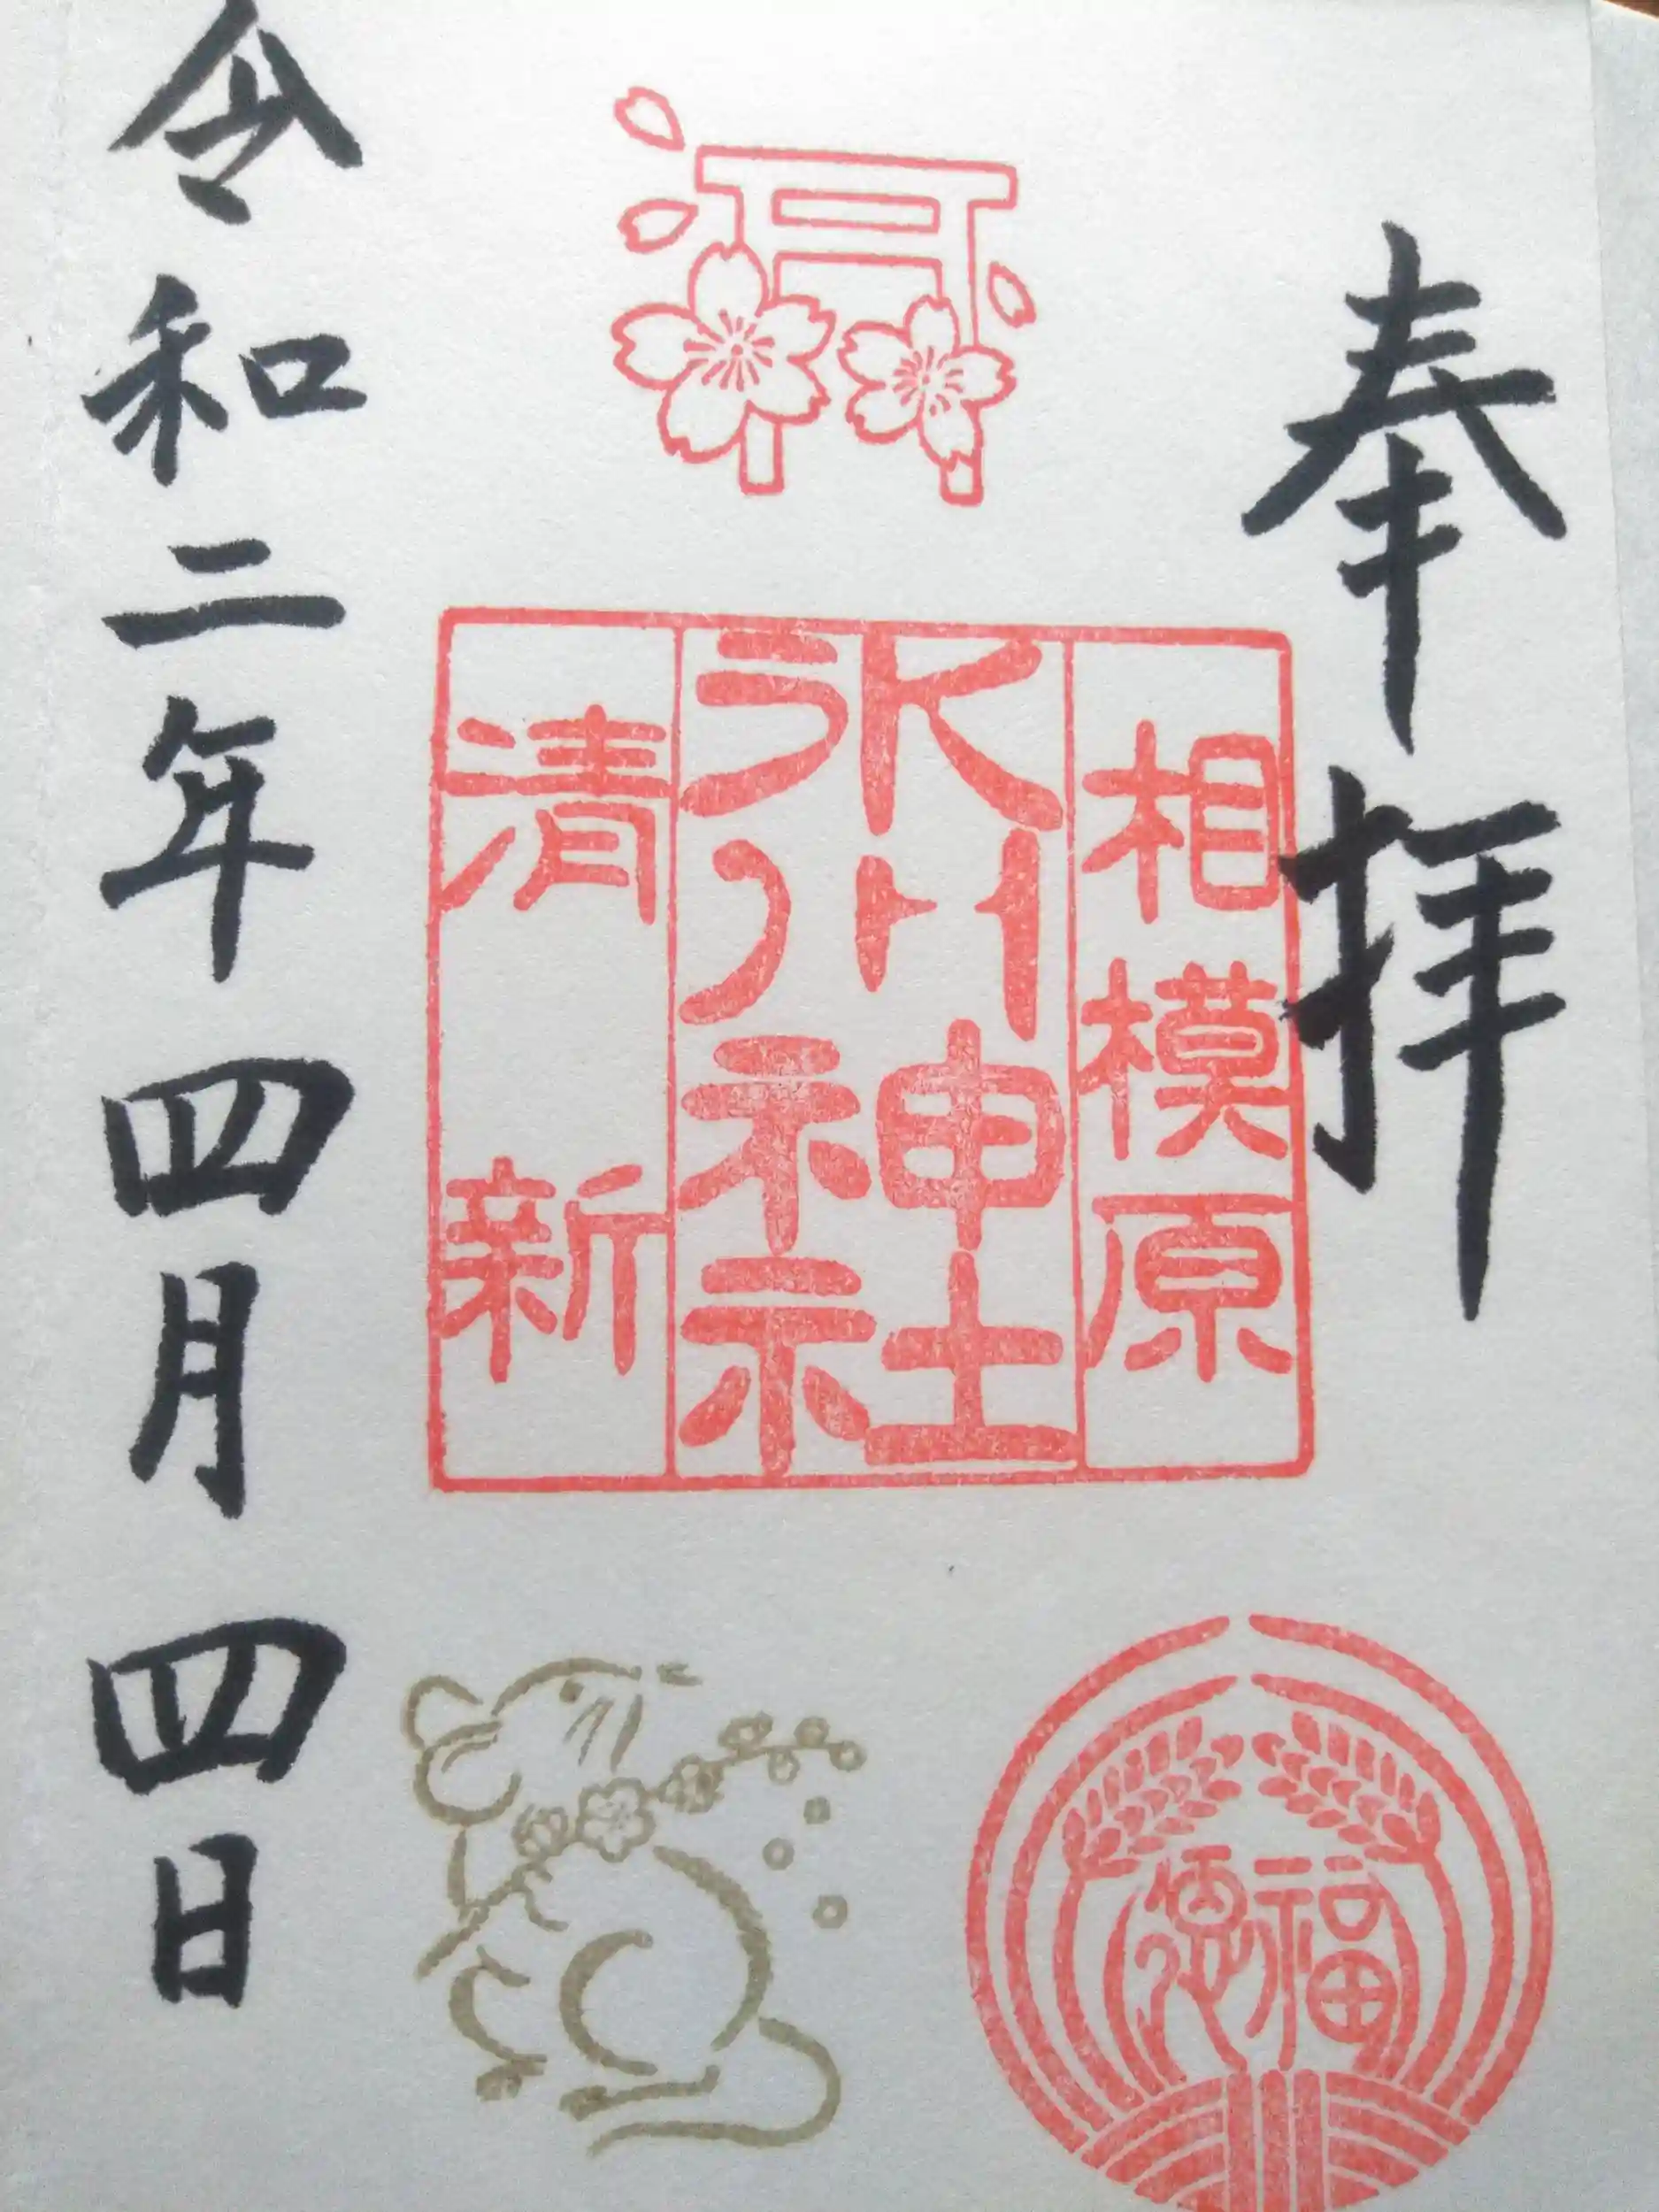 奉拝
相模原
氷川神社
清新
令和二年四月四日
福